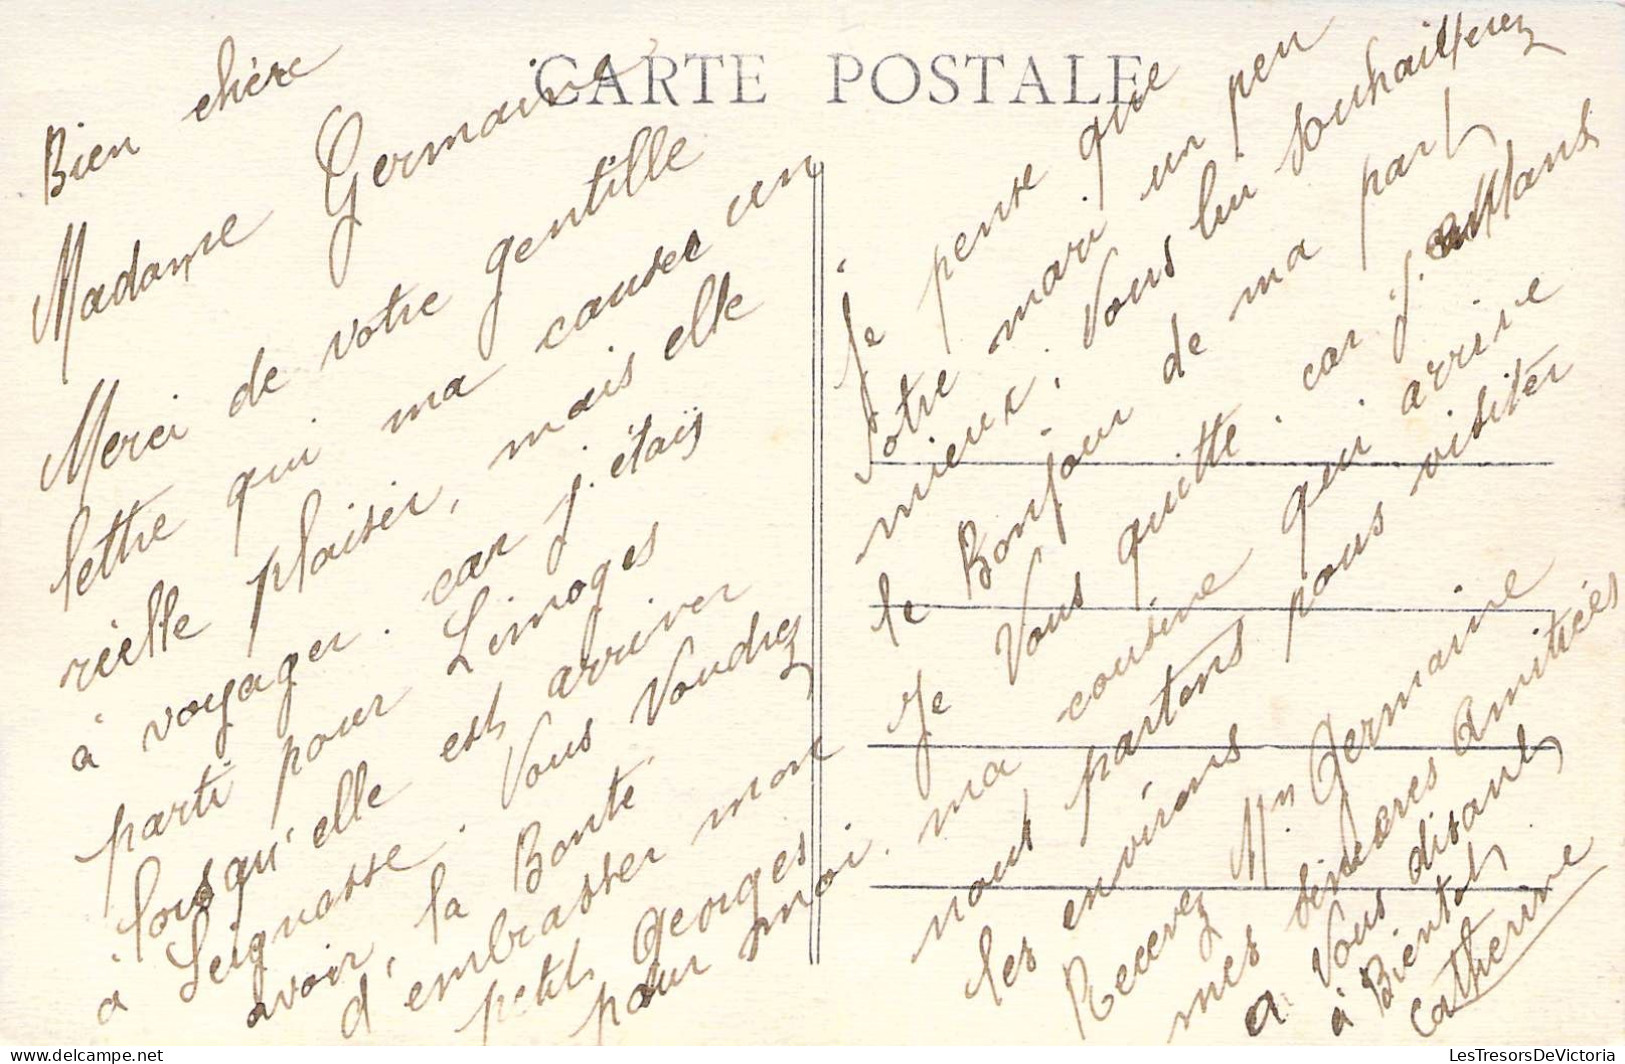 CARTE POSTALE
Bien chère
Madame Germaine
Merci de votre gentille
lettre qui ma causer un
réelle plaisir, mais elle
à voyager. car j'étais
parti pour Limoges
lorsqu'elle est arriver
à Seignosse. Vous Voudrez
avoir, la Bonté.
d'embrasser mon
petit Georges
pour moi.
Je pense que
Votre mari un peu
mieux. Vous lui souhaiterez
le Bonjour de ma part
Je Vous quitte. car j'attans
ma cousine qui. arrive
nous partons pour visiter
les environs
Recevez Mm Germaine
mes sinceres Amitiées
a Vous disant
à Bientot
Catherine
LesTresorsDeVictoria
www.delcampe.net